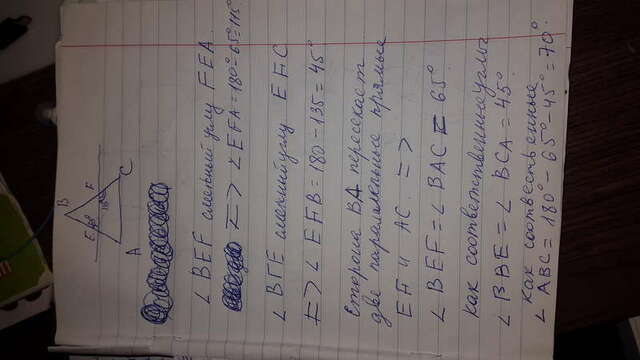 B
E
F
C
A
∠BEF смежный углу FEA
=> ∠EFA = 180°-65°=115°
∠BFE смежный углу EFC
=> ∠EFB = 180-135=45°
Сторона BA пересекает
две параллельные прямые
EF и AC. =>
∠BEF = ∠BAC = 65°
как соответственные углы
= ∠BCA = 45°
как соотвественные
∠ABC = 180°-65°-45°=70°